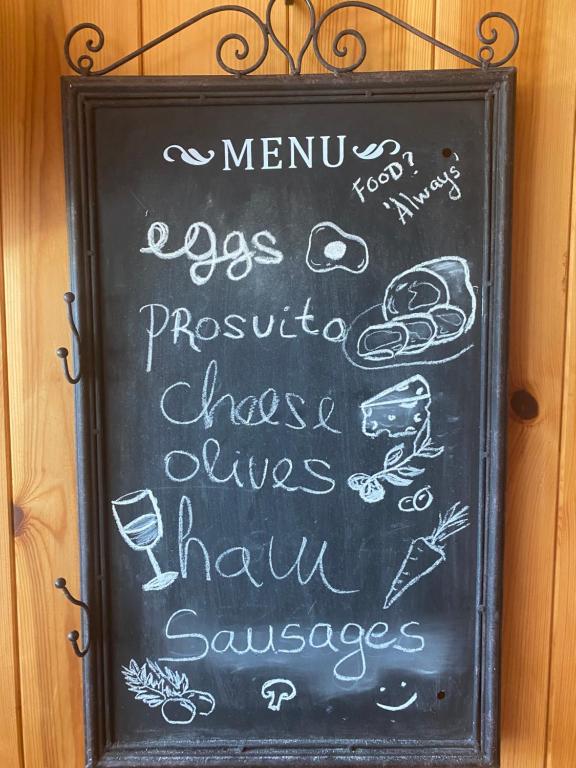 MENU
FOOD?
'Always'
eggs
PROSUITO
cheese
olives
ham
Sausages